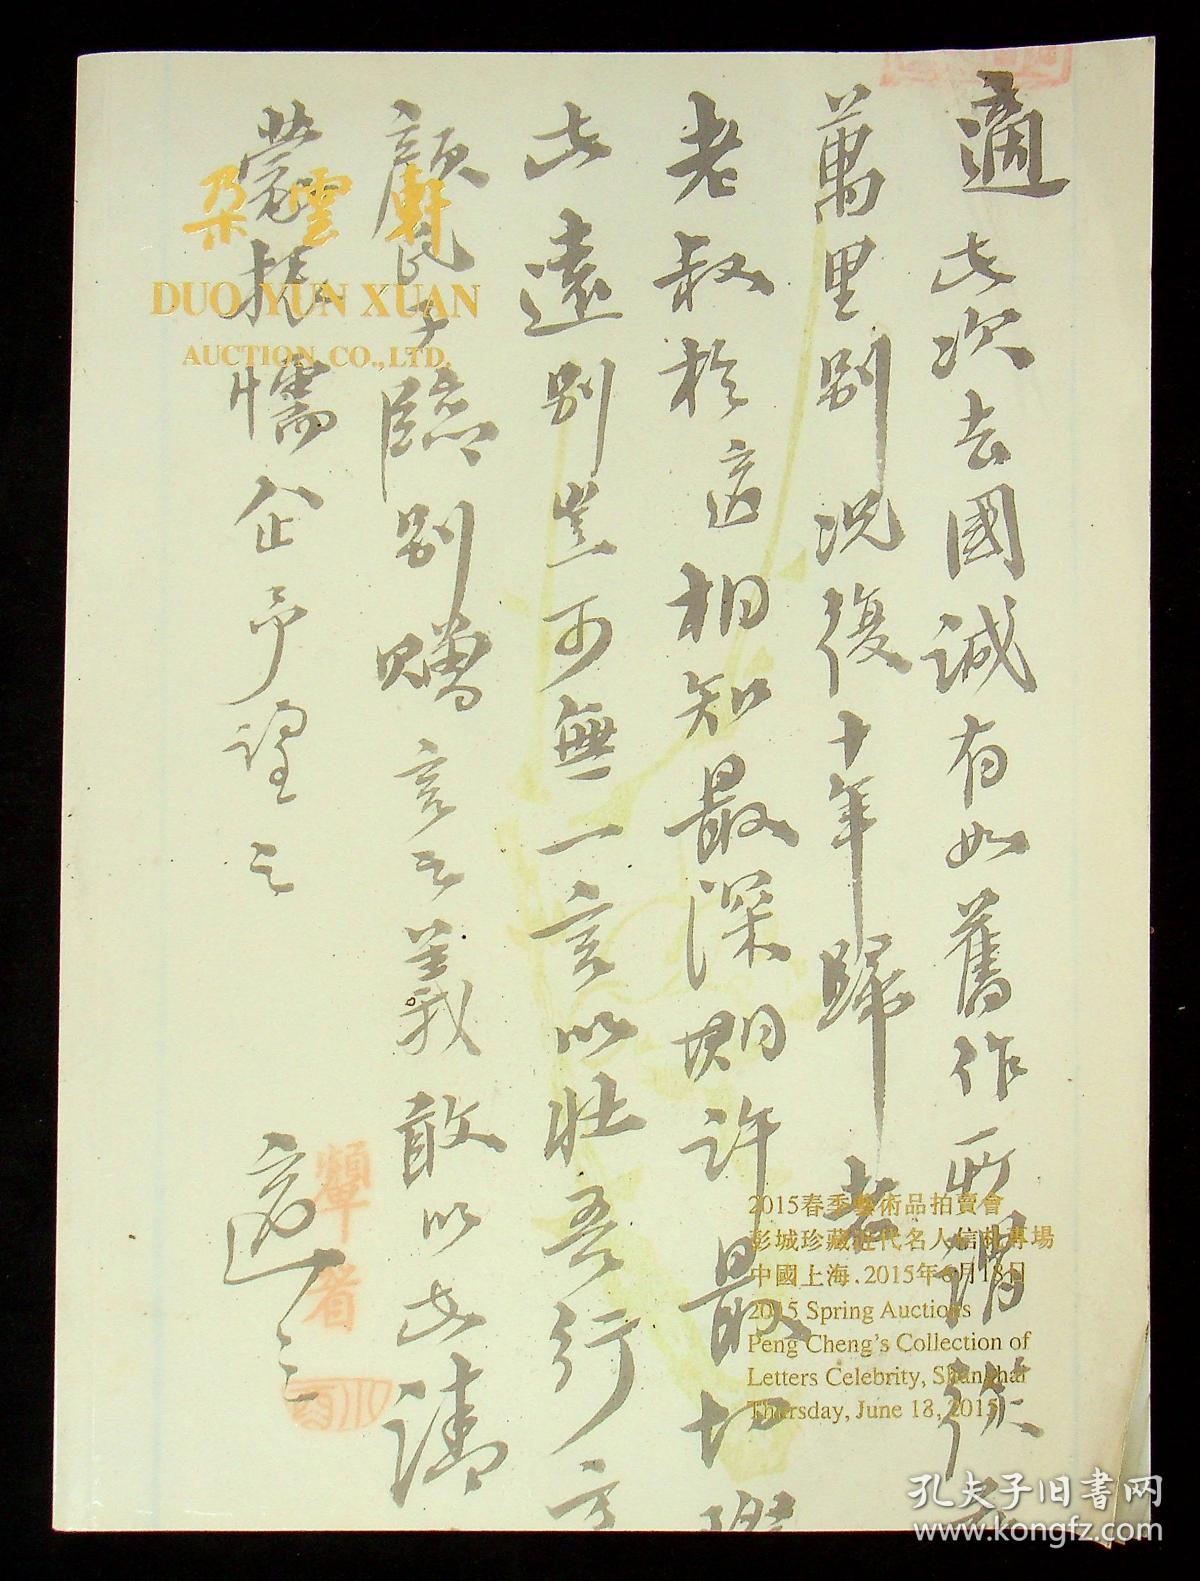 適此次去國誠有如舊作所謂從
萬里別況復十年歸 老
老叔於適相知最深期許最切際
此遠別豈可無一言以壯吾行言
顏氏子臨別贈言之義敢以此請
蒙振懦企予望之
適之
朵雲軒
DUO YUN XUAN
AUCTION CO., LTD.
2015春季藝術品拍賣會
彭城珍藏近代名人信札專場
中國上海.2015年6月18日
2015 Spring Auctions
Peng Cheng's Collection of
Letters Celebrity, Shanghai
Thursday, June 18, 2015
孔夫子旧书网
www.kongfz.com